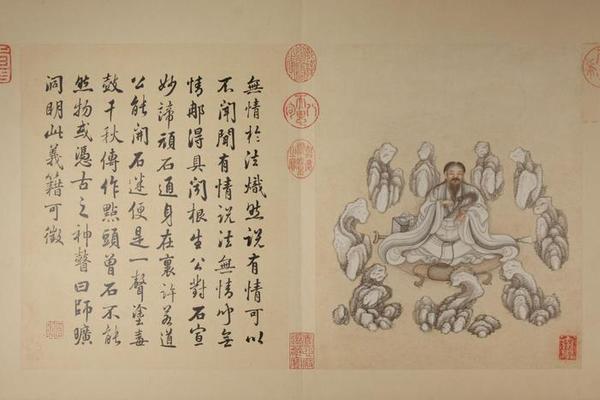 無情於法熾然說有情可以
不聞聞有情說法無情叩無
情那得具聞根生公對石宣
妙諦頑石通身在裏許若道
公能開石迷便是一聲塗毒
鼓千秋傳作點頭曾石不能
然物或憑古之神瞽曰師曠
洞明此義籍可徵